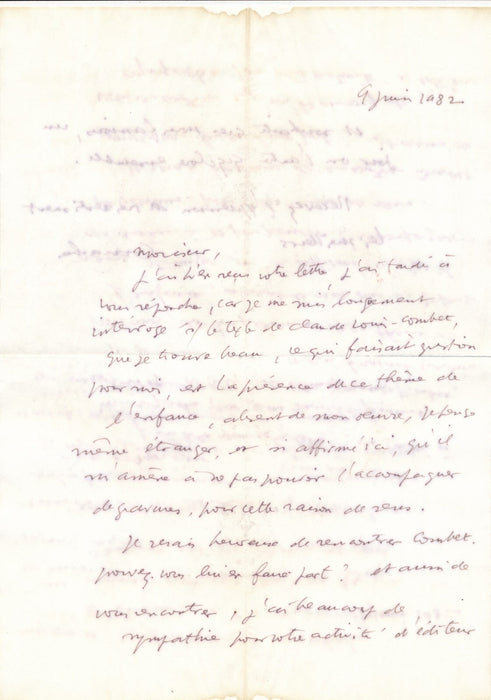 9 Juin 1982
Monsieur,
J'ai bien reçu votre lettre, j'ai tardé à
vous répondre, car je me suis longuement
interrogé s/ le texte de Claude Louis-Combet,
que je trouve beau, ce qui faisait question
pour moi, est la présence de ce thème de
l'enfance, absent de mon œuvre, je pense
même étranger, et si affirmé ici, qu'il
m'amène à ne pas pouvoir l'accompagner
de gravures, pour cette raison de sens.
Je serais heureuse de rencontrer Combet.
pouvez-vous lui en faire part ? et aussi de
vous rencontrer, j'ai beaucoup de
sympathie pour votre activité d'éditeur